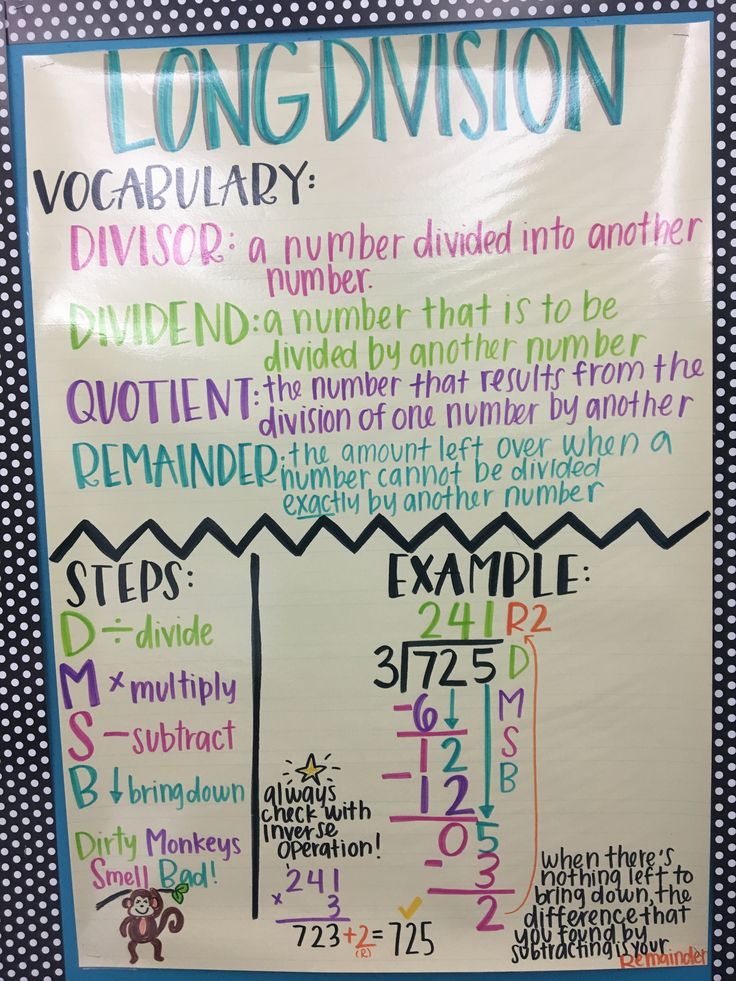 LONG DIVISION
VOCABULARY:
DIVISOR: a number divided into another
number.
DIVIDEND: a number that is to be
divided by another number
QUOTIENT: the number that results from the
division of one number by another
REMAINDER: the amount left over when a
number cannot be divided
exactly by another number
STEPS:
D ÷ divide
M × multiply
S - subtract
B ↓ bring down
Dirty Monkeys
Smell Bad!
EXAMPLE:
241 R2
3)725 D
-6↓ M
12 S
-12 B
05
-3
2
always
check with
inverse
operation!
241
× 3
723+2=725 ✓
(R)
when there's
nothing left to
bring down, the
difference that
you found by
subtracting is your
Remainder